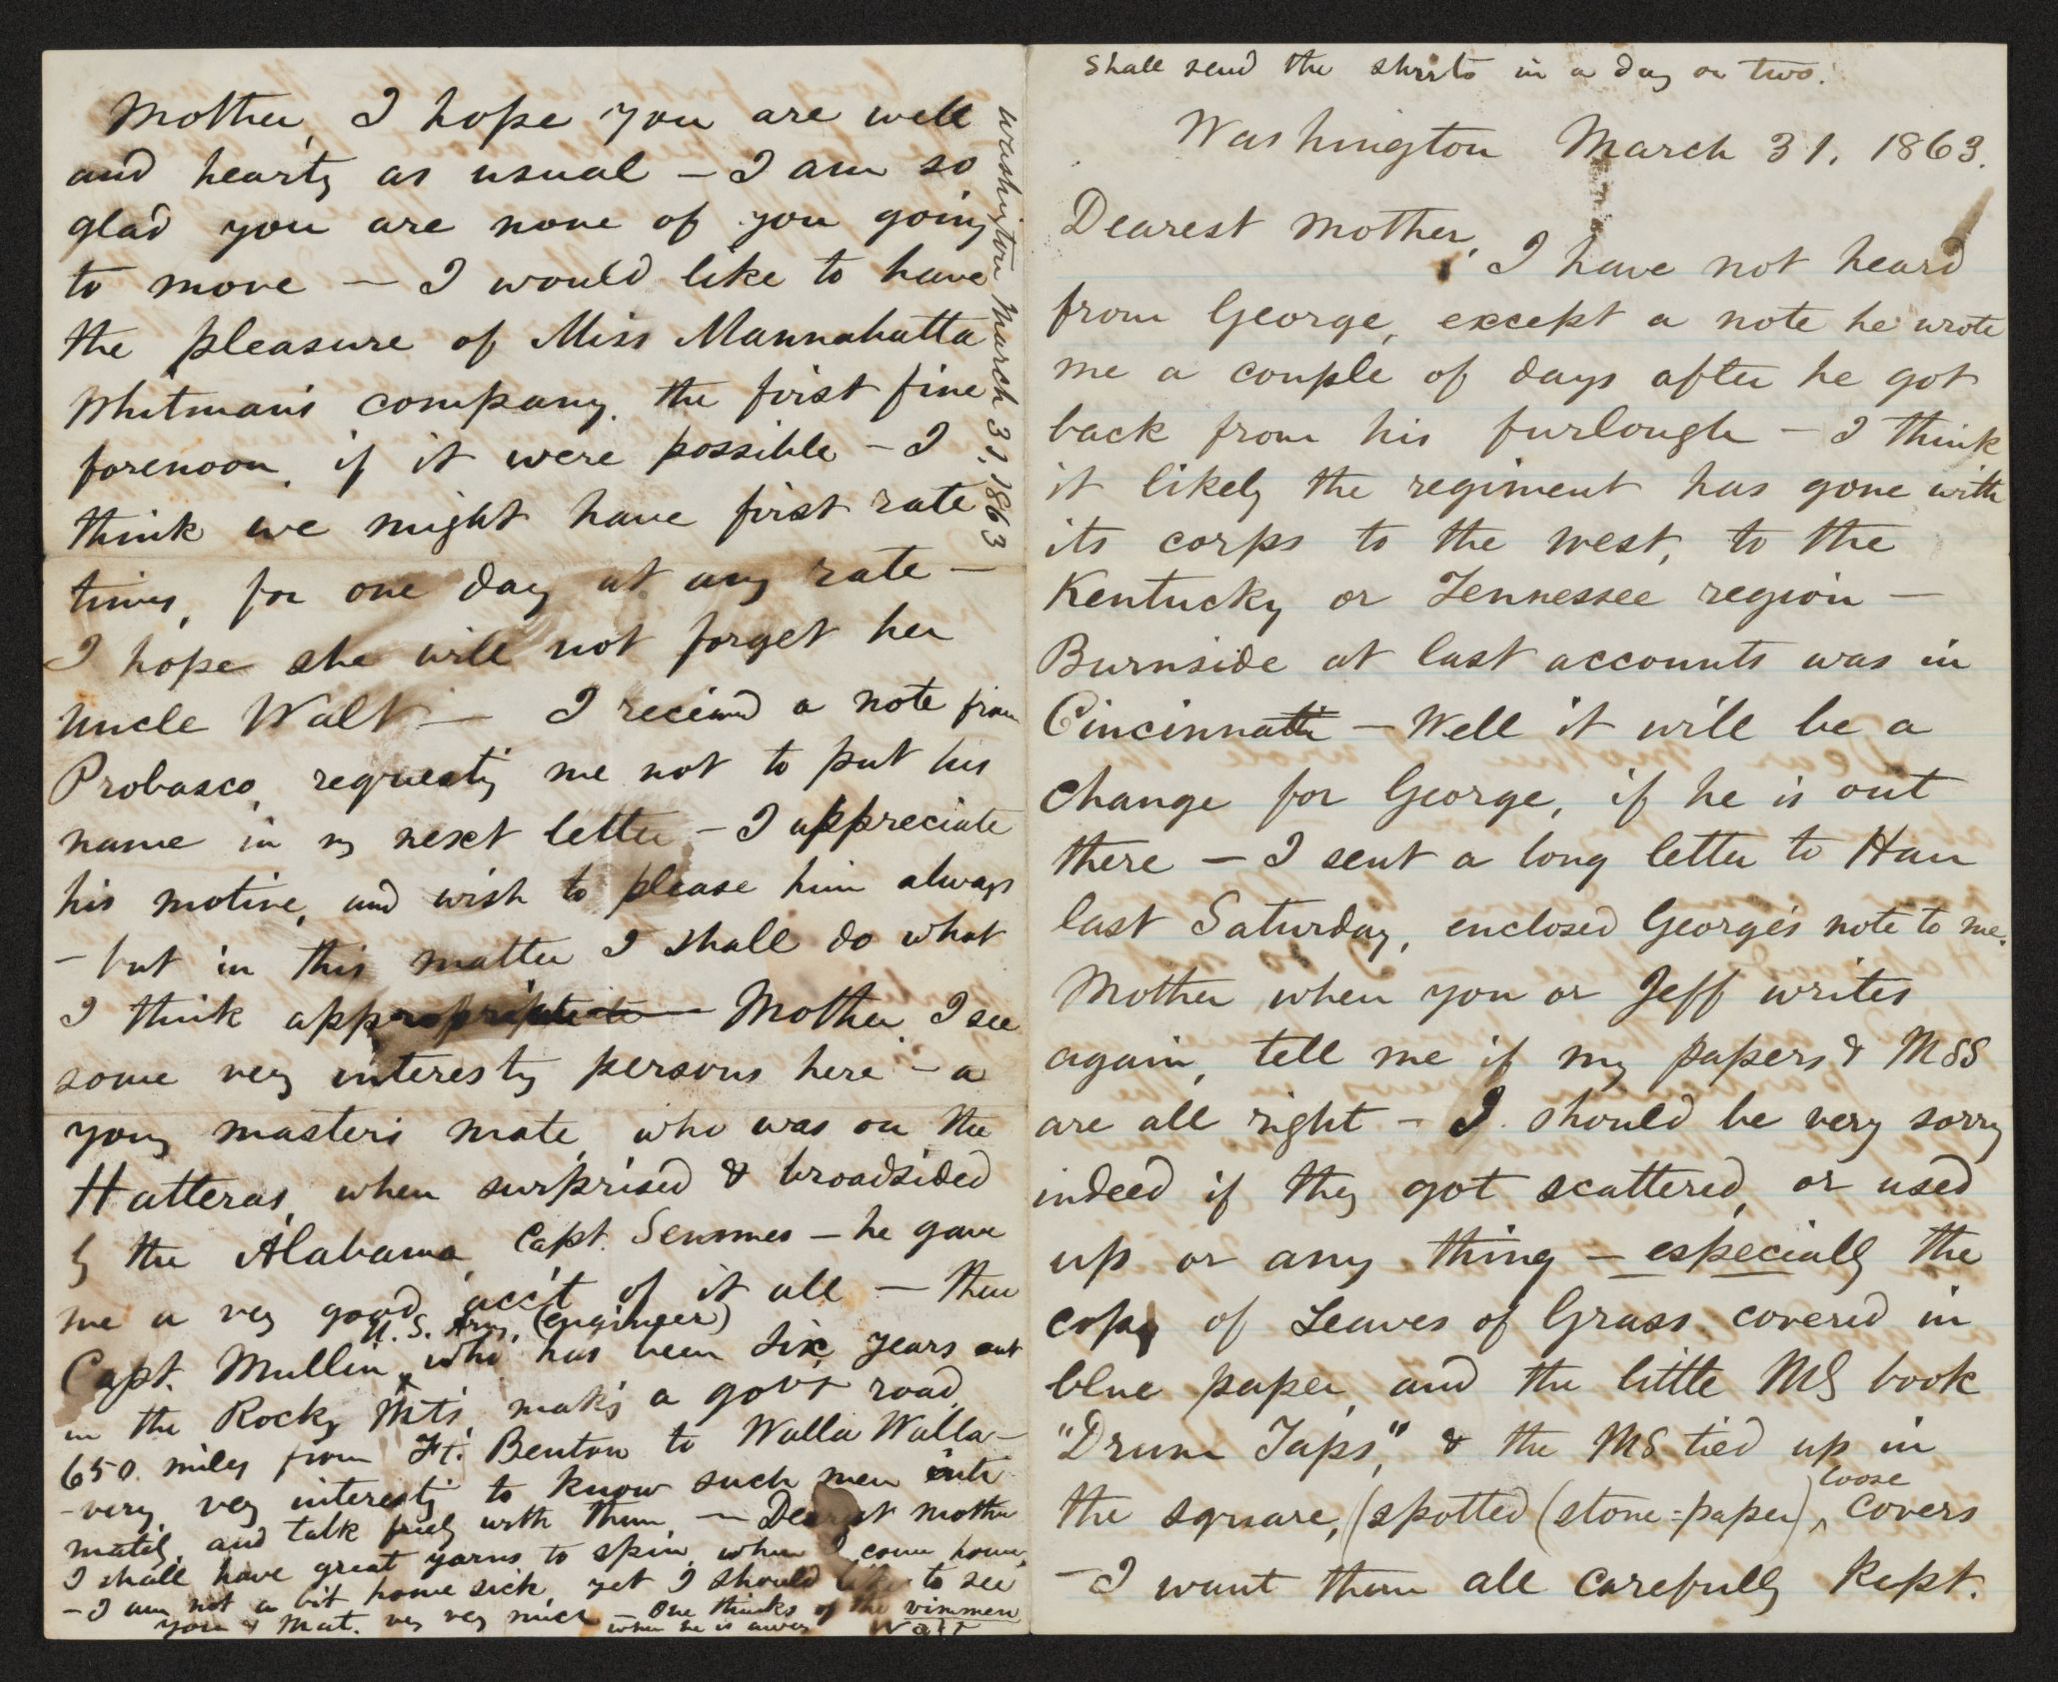 Shall send the shirts in a day or two.
Washington March 31, 1863.
Dearest Mother,
I have not heard
from George, except a note he wrote
me a couple of days after he got
back from his furlough — I think
it likely the regiment has gone with
its corps to the west, to the
Kentucky or Tennessee region —
Burnside at last accounts was in
Cincinnatti — Well it will be a
change for George, if he is out
there — I sent a long letter to Han
last Saturday, enclosed George's note to me.
Mother when you or Jeff writes
again, tell me if my papers & MSS
are all right — I should be very sorry
indeed if they got scattered, or used
up or any thing — especially the
copy of Leaves of Grass covered in
blue paper, and the little MS book
"Drum Taps," & the MS tied up in
the square, (spotted (stone-paper) loose covers
— I want them all carefully kept.
Mother, I hope you are well
and hearty as usual — I am so
glad you are none of you going
to move — I would like to have
the pleasure of Miss Mannahatta
Whitman's company, the first fine
forenoon, if it were possible — I
think we might have first rate
times, for one day at any rate —
I hope she will not forget her
Uncle Walt — I received a note from
Probasco, requesting me not to put his
name in my next letter — I appreciate
his motive, and wish to please him always
— but in this matter I shall do what
I think appropriate — Mother, I see
some very interesting persons here — a
young master's mate, who was on the
Hatteras, when surprised & broadsided
by the Alabama, Capt. Semmes — he gave
me a very good acc't of it all — then
Capt. Mullin, U.S. Army, (engineer) who has been six years out
in the Rocky Mts, making a gov't road,
650 miles from Ft. Benton to Walla Walla —
— very, very interesting to know such men inti
mately, and talk freely with them — Dearest Mother
I shall have great yarns to spin, when I come home,
— I am not a bit home sick, yet I should like to see
you & Mat. very very much — one thinks of the wimmen
when he is away
Walt
Washington March 31, 1863